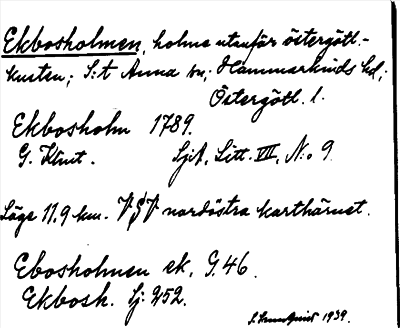 Ekbosholmen, holme utanför östergötl.-
kusten; S:t Anna sn; Hammarkinds hd;
Östergötl. l.
Ekbosholm 1789.
G. Klint. Sjök, Litt. VIII, N:o 9
Läge 11.9 km. VSV nordöstra karthörnet.
Ebosholmen ek. G. 46.
Ekbosh. Sj. 252.
1939.